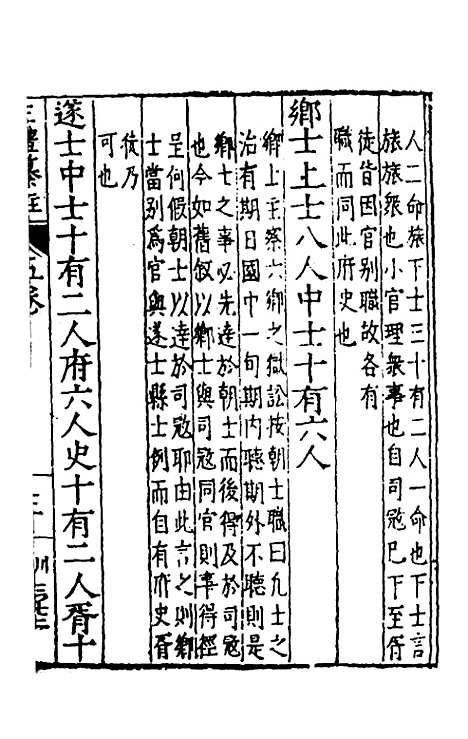 人二命旅下士三十有二人一命也下士言
旅旅衆也小官理衆事也自司寇已下至胥
徒皆因官别職故各有
職而同此府史也
鄉士上士八人中士十有六人
鄉士主察六鄉之獄訟按朝士職曰凡士之
治有期日國中一旬期内聽期外不聽則是
鄉士之事必先達於朝士而後得及於司寇
也今如舊叙以鄉士與司寇同官則事得徑
呈何假朝士以達於司寇耶由此言之則鄉
士當别爲官與遂士縣士例而自有府史胥
徒乃
可也
遂士中士十有二人府六人史十有二人胥十
三禮纂註
五卷